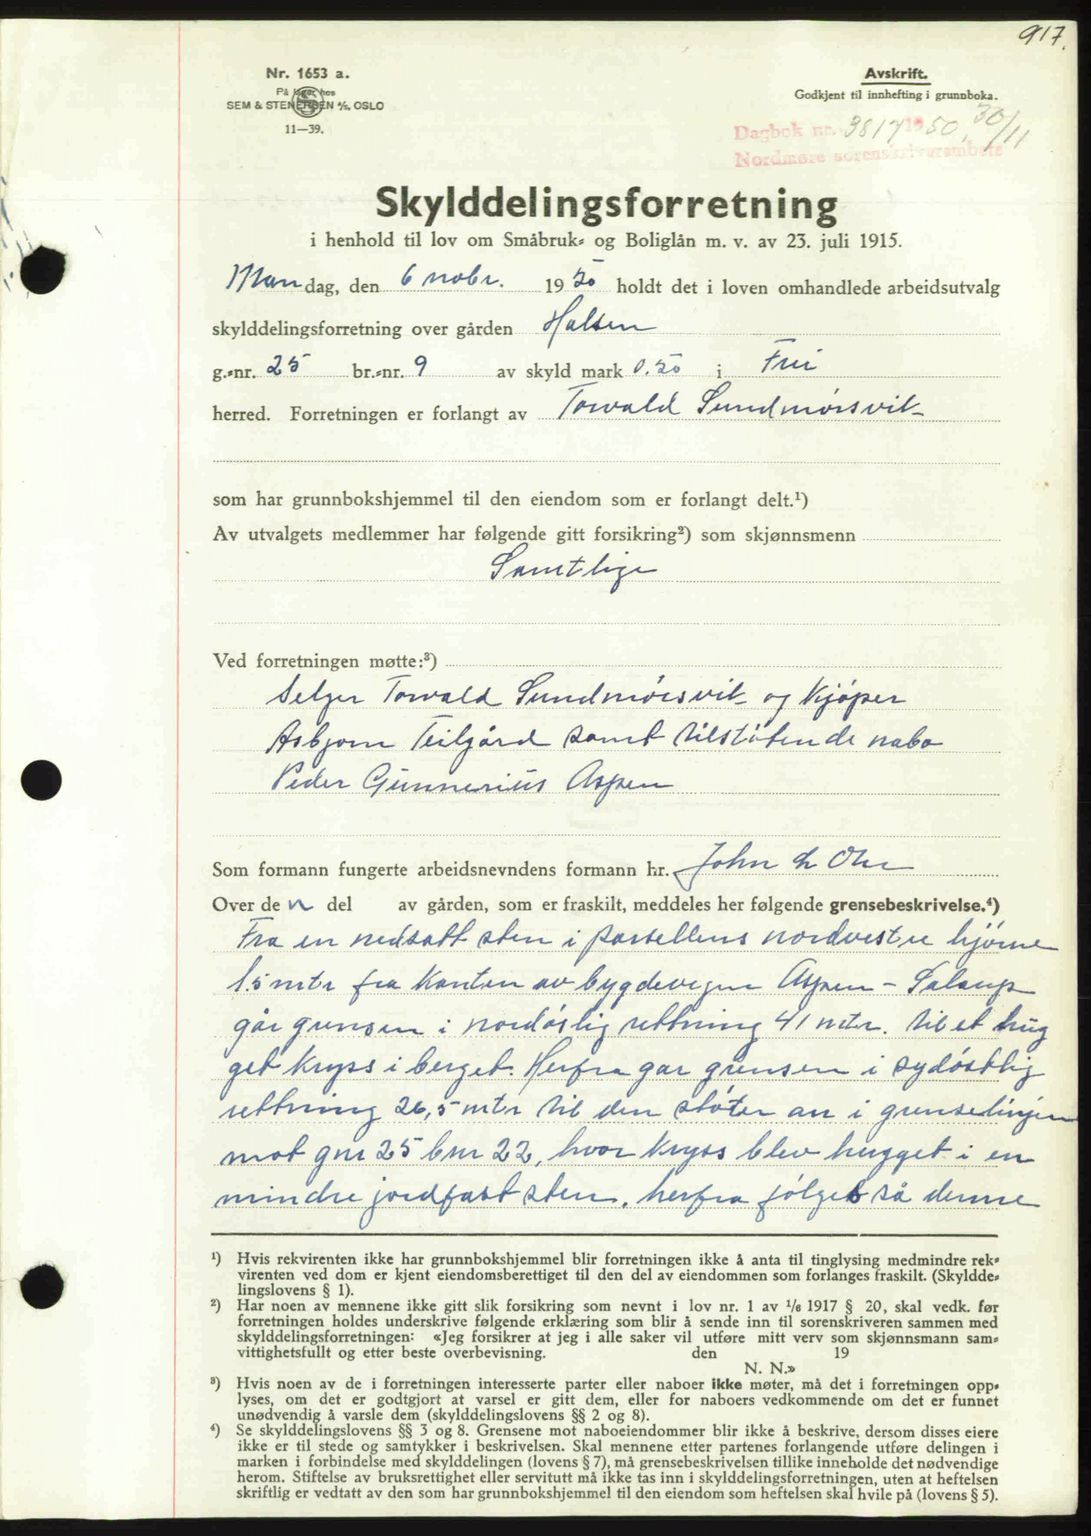 917.
Nr. 1653 a.
På lager hos
SEM & STENERSEN A/S, OSLO
11—39.
Avskrift.
Godkjent til innhefting i grunnboka.
Dagbok nr. 3817 1950, 30/11
Nordmøre sorenskriverembete
Skylddelingsforretning
i henhold til lov om Småbruk- og Boliglån m. v. av 23. juli 1915.
Mandag, den 6 nobr. 1950 holdt det i loven omhandlede arbeidsutvalg
skylddelingsforretning over gården Halsen
g.-nr. 25 br.-nr. 9 av skyld mark 0.50 i Frei
herred. Forretningen er forlangt av Torvald Sundmörsvik
som har grunnbokshjemmel til den eiendom som er forlangt delt.¹)
Av utvalgets medlemmer har følgende gitt forsikring²) som skjønnsmenn
Samtlige
Ved forretningen møtte:³)
Selger Torvald Sundmörsvik og Kjöper
Asbjørn Teilgård samt tilstötende nabo
Peder Gunnerius Aspen
Som formann fungerte arbeidsnevndens formann hr. John L Ohr
Over den del av gården, som er fraskilt, meddeles her følgende grensebeskrivelse.⁴)
Fra en nedsatt sten i parsellens nordvestre hjörne
1.5 mtr fra kanten av bygdevegen Aspen - Solang
går grensen i nordöslig rettning 41 mtr. til et hug
get kryss i berget. Herfra gar grensen i sydöstlig
rettning 26,5 mtr til den stöter an i grenselinjen
mot gnr 25 bnr 22, hvor kryss blev hugget i en
mindre jordfast sten. herfra fölges så denne
¹) Hvis rekvirenten ikke har grunnbokshjemmel blir forretningen ikke å anta til tinglysing medmindre rek-
virenten ved dom er kjent eiendomsberettiget til den del av eiendommen som forlanges fraskilt. (Skyldde-
lingslovens § 1).
²) Har noen av mennene ikke gitt slik forsikring som nevnt i lov nr. 1 av 1/6 1917 § 20, skal vedk. før
forretningen holdes underskrive følgende erklæring som blir å sende inn til sorenskriveren sammen med
skylddelingsforretningen: «Jeg forsikrer at jeg i alle saker vil utføre mitt verv som skjønnsmann sam-
vittighetsfullt og etter beste overbevisning. den 19
N. N.»
³) Hvis noen av de i forretningen interesserte parter eller naboer ikke møter, må det i forretningen opp-
lyses, om det er godtgjort at varsel er gitt dem, eller for naboers vedkommende om det er funnet
unødvendig å varsle dem (skylddelingslovens §§ 2 og 8).
⁴) Se skylddelingslovens §§ 3 og 8. Grensene mot naboeiendommer blir ikke å beskrive, dersom disses eiere
ikke er til stede og samtykker i beskrivelsen. Skal mennene etter partenes forlangende utføre delingen i
marken i forbindelse med skylddelingen (lovens § 7), må grensebeskrivelsen tillike inneholde det nødvendige
herom. Stiftelse av bruksrettighet eller servitutt må ikke tas inn i skylddelingsforretningen, uten at heftelsen
skriftlig er vedtatt av den som har grunnbokshjemmel til den eiendom som heftelsen skal hvile på (lovens § 5).